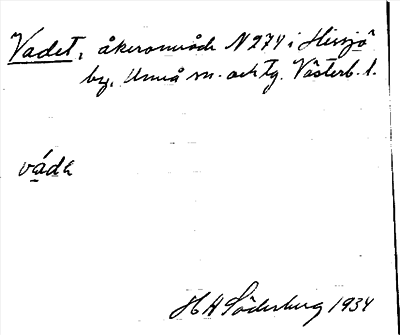 Vadet, åkerområde N 274 i Hissjö
by, Umeå sn. och tg. Västerb. l.
vádꞓ
H H Söderberg 1934